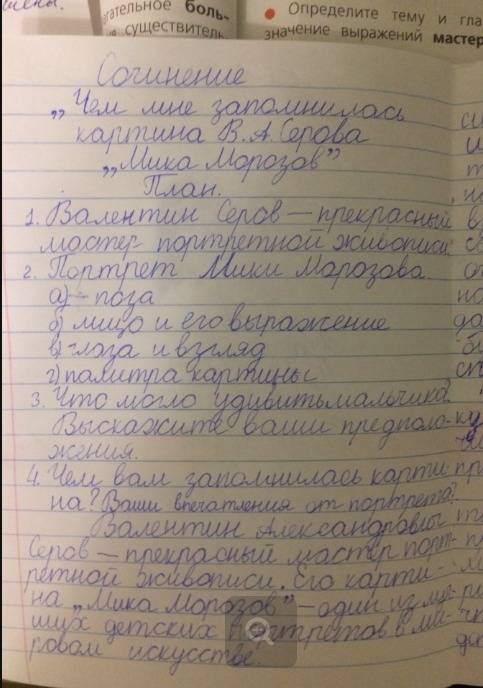 шены.
гательное боль-
существитель
Определите тему и гла
значение выражений мастер
Сочинение
„Чем мне запомнилась
картина В. А. Серова
„Мика Морозов”
План.
1. Валентин Серов — прекрасный
мастер портретной живописи.
2. Портрет Мики Морозова
а) - поза
б) лицо и его выражение
в) глаза и взгляд
г) палитра картины
3. Что могло удивить мальчика?
Выскажите ваши предполо-
жения.
4. Чем вам запомнилась карти
на? Ваши впечатления от портрета?
Валентин Александровны
Серов — прекрасный мастер порт-
ретной живописи. Его карти-
на „Мика Морозов” — один из лу-
ших детских портретов в ми-
ровом искусстве.